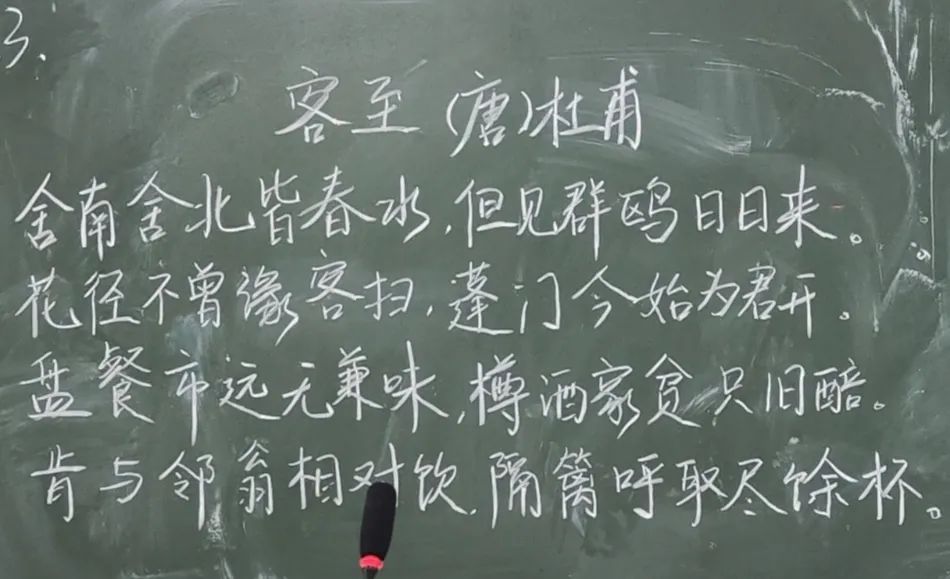 3.
客至 (唐)杜甫
舍南舍北皆春水,但见群鸥日日来。
花径不曾缘客扫,蓬门今始为君开。
盘餐市远无兼味,樽酒家贫只旧醅。
肯与邻翁相对饮,隔篱呼取尽馀杯。